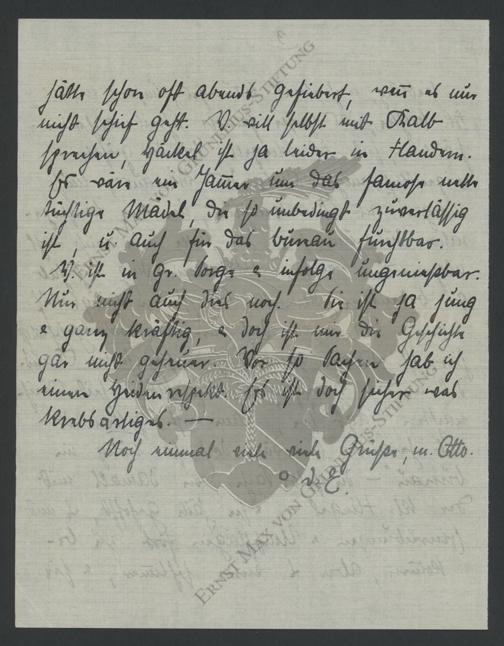 hätte schon oft abends gefiebert, wenn es nur
nicht schief geht. V. will selbst mit Kalb
sprechen, Häckel ist ja leider in Flandern.
Es wäre ein Jam̅er um das famose nette
tüchtige Mädel, die so unbedingt zuverlässig
ist u. auch für das bureau furchtbar.
V. ist in gr. Sorge & infolge ungeniessbar.
Nur nicht auch dies noch. Sie ist ja jung
& ganz kräftig, & doch ist mir die Geschichte
gar nicht geheuer. Vor so Sachen hab ich
einen Heidenrespekt. Es ist doch sicher was
krebsartiges. —
Noch einmal viele Grüsse, m. Otto.
ERNST MAX VON GRUNELIUS-STIFTUNG
ERNST MAX VON GRUNELIUS-STIFTUNG